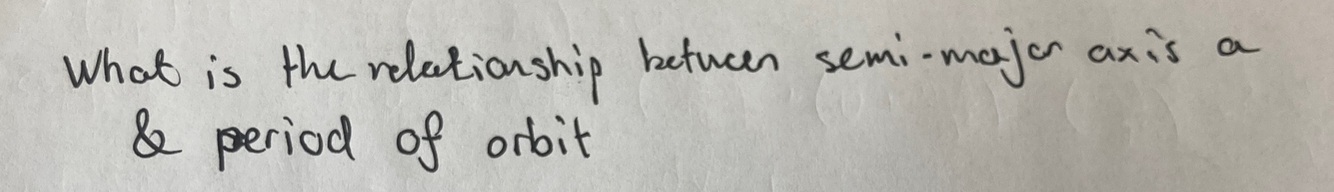 What is the relationship between semi-major axis a
& period of orbit